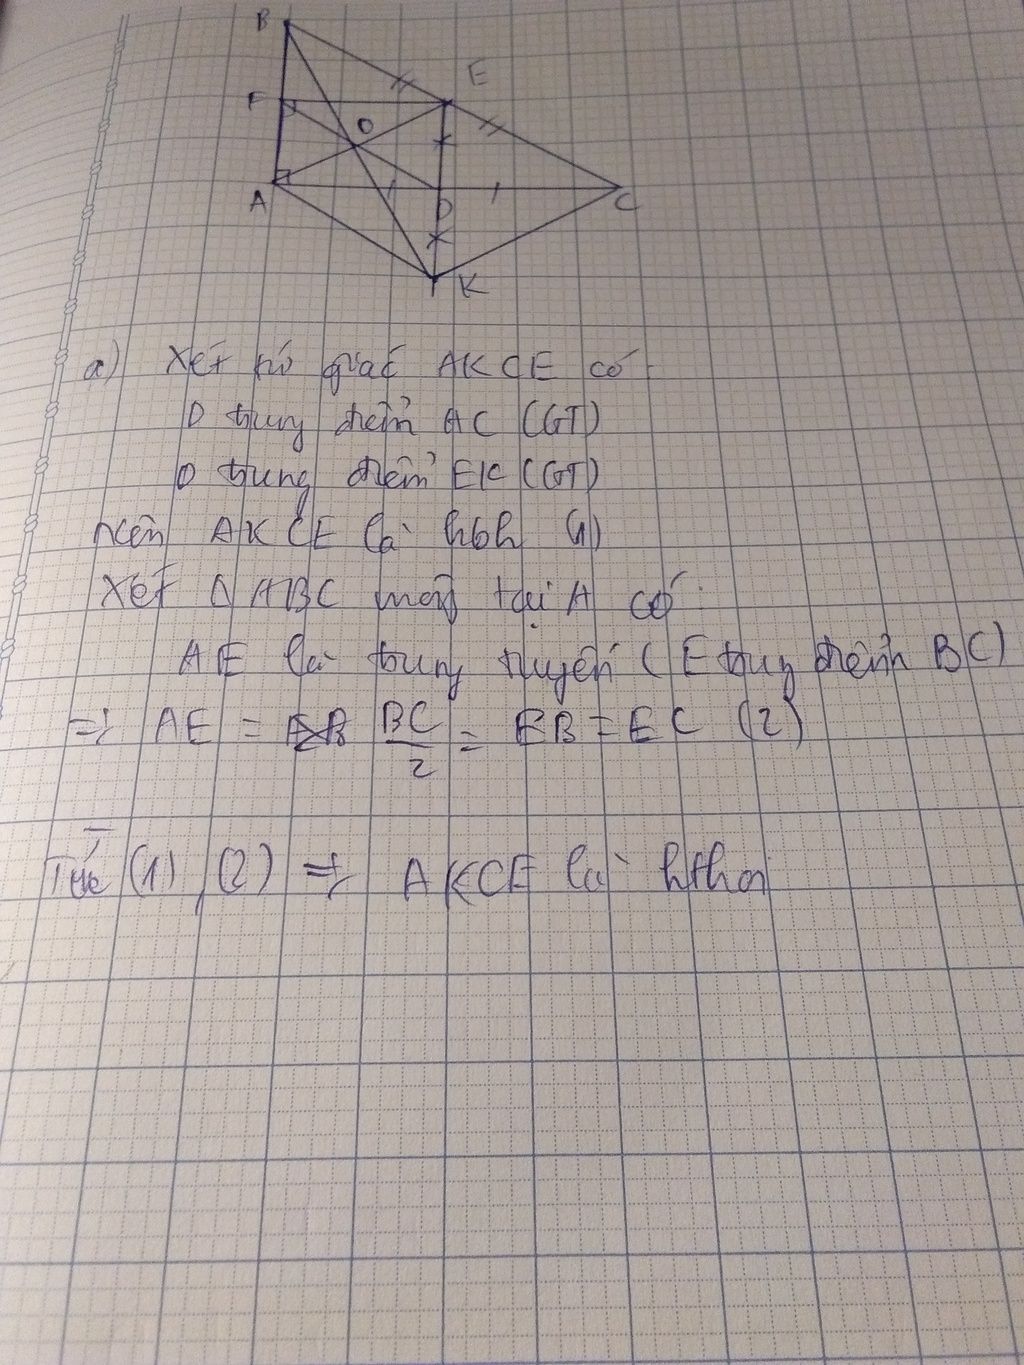 B
E
F
O
A
D
C
K
a) Xét tứ giác AKCE có
D trung điểm AC (GT)
D trung điểm EK (GT)
nên AKCE là hbh (1)
Xét Δ ABC vuông tại A có:
AE là trung tuyến (E trung điểm BC)
=> AE = BC/2 = EB = EC (2)
Từ (1), (2) => AKCE là hthoi